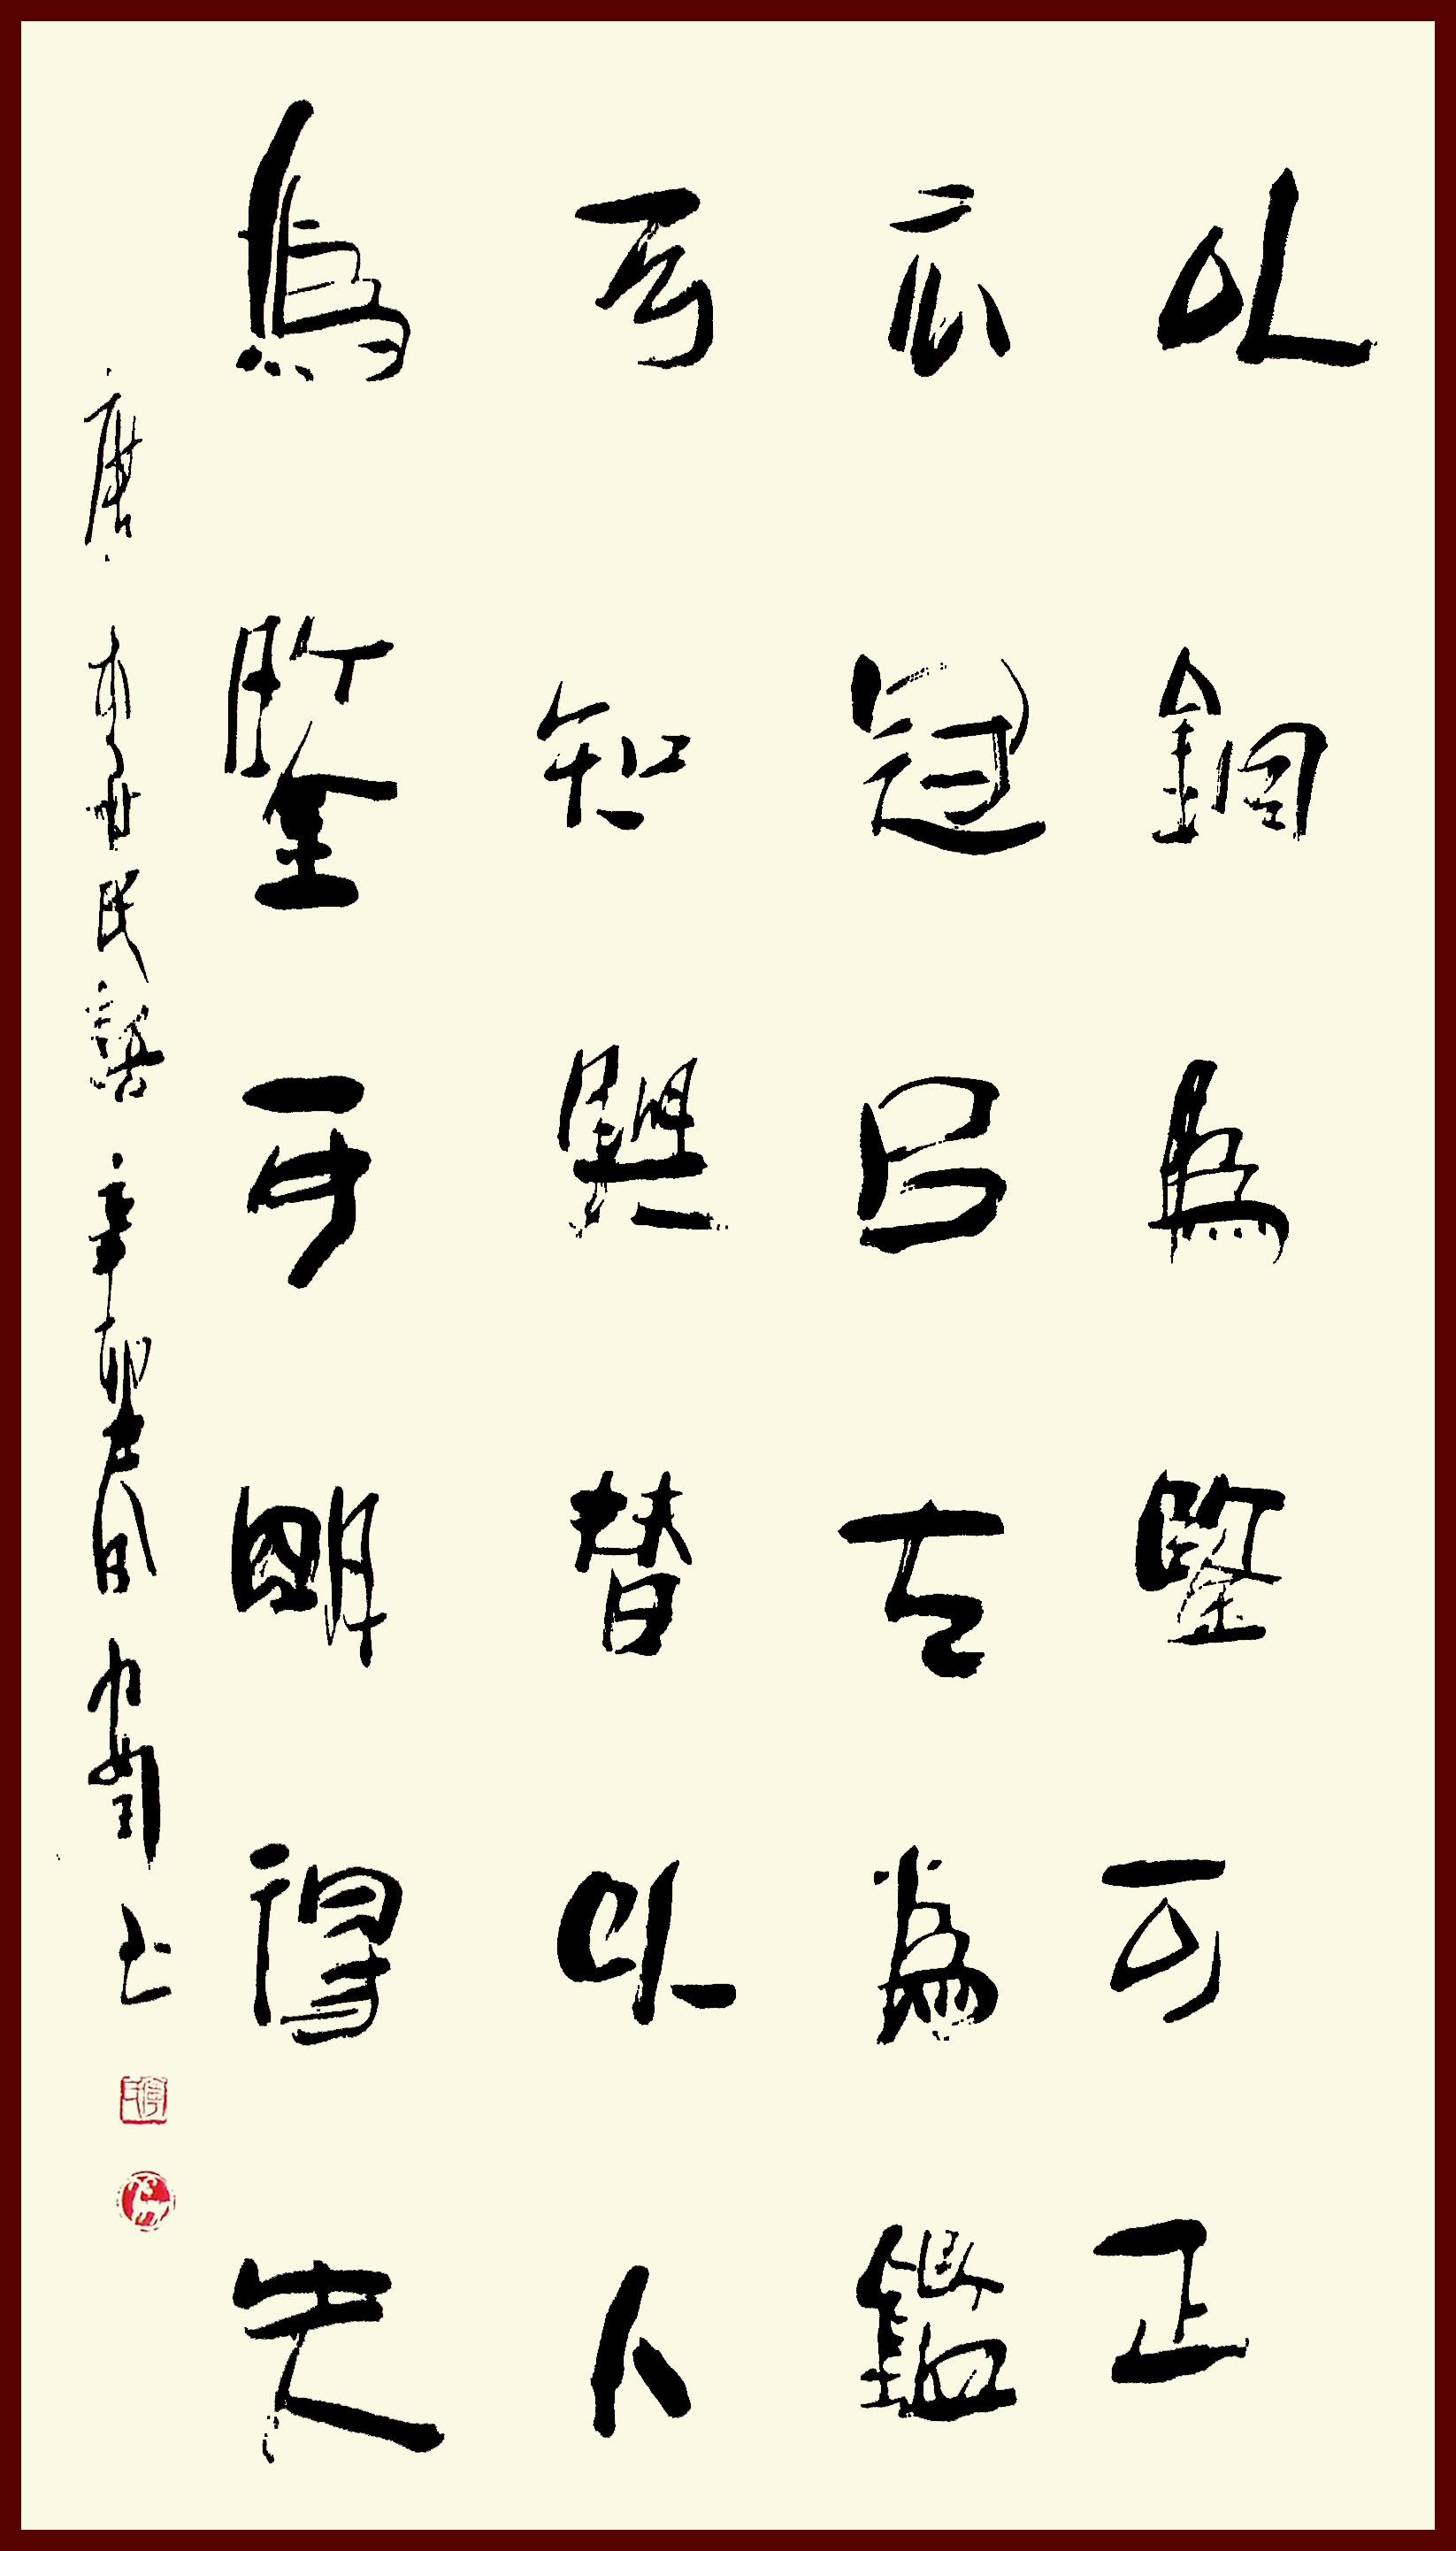 以銅為鑒可正
衣冠以古為鑑
可知興替以人
為鑒可明得失
唐 李世民語 辛卯春月 寧 书